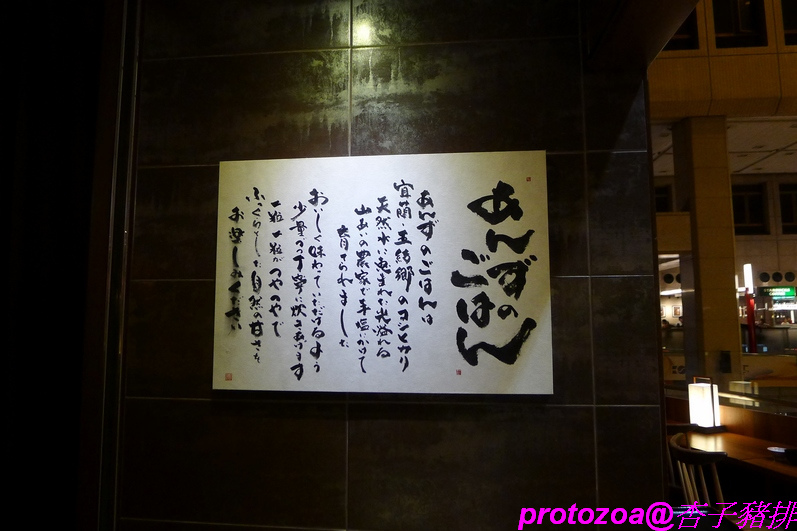 あんずの
ごはん
あんずのごはんは
宜蘭・五結郷のコシヒカリ
天然水に恵まれ光溢れる
山あいの農家が手塩にかけて
育てられました
おいしく味わっていただけるよう
少量づつ丁寧に炊きあげます
一粒一粒がつやつやで
ふっくらとした自然の甘さを
お楽しみください
protozoa@杏子豬排